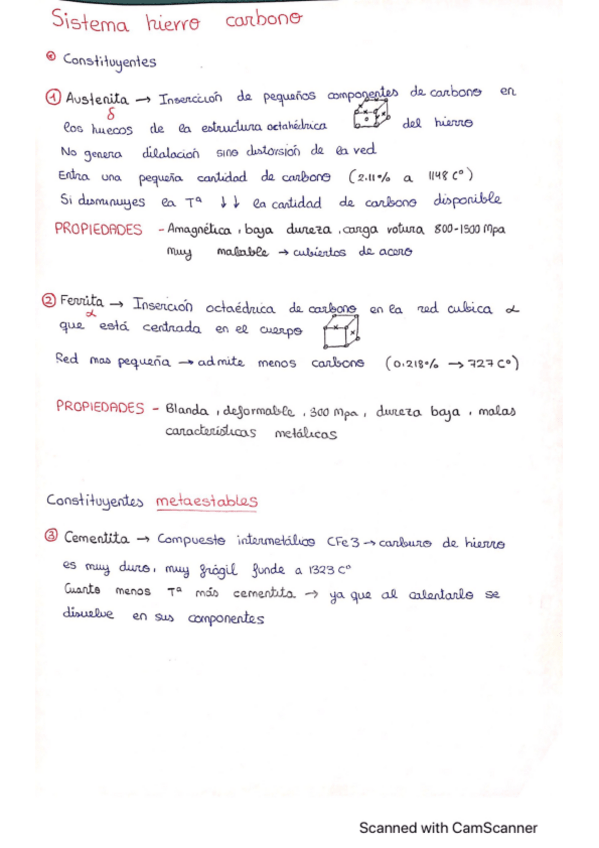 Sistema hierro carbono
Constituyentes
① Austenita → Inserccion de pequeños componentes de carbono en
δ
los huecos de la estructura octahédrica del hierro
No genera dilalacion sino distorsión de la red
Entra una pequeña cantidad de carbono (2.11% a 1148 Cº)
Si desminuyes la Tª ↓↓ la cantidad de carbono disponible
PROPIEDADES - Amagnética, baja dureza, carga rotura 800-1500 Mpa
muy maleable → cubiertos de acero
② Ferrita → Inserción octaédrica de carbono en la red cubica α
α
que está centrada en el cuerpo
Red mas pequeña → admite menos carbono (0.218% → 727 Cº)
PROPIEDADES - Blanda, deformable, 300 Mpa, dureza baja, malas
caracteristicas metálicas
Constituyentes metaestables
③ Cementita → Compuesto intermetálico CFe3 → carburo de hierro
es muy duro, muy frágil funde a 1323 Cº
Cuanto menos Tª más cementita → ya que al calentarlo se
disuelve en sus componentes
Scanned with CamScanner